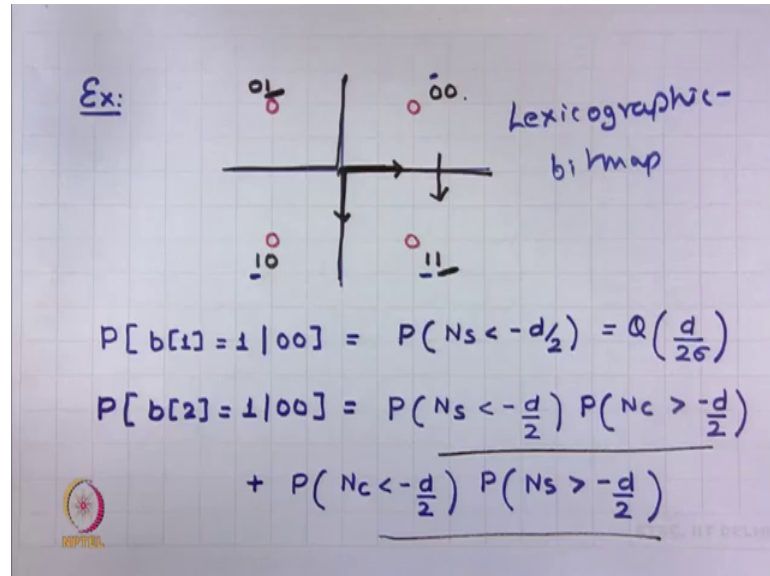 Ex:
01 00.
Lexicographic-
bitmap
10 11
P[b[1]=1|00] = P(Ns < -d/2) = Q(d/2σ)
P[b[2]=1|00] = P(Ns < -d/2) P(Nc > -d/2)
+ P(Nc < -d/2) P(Ns > -d/2)
NPTEL